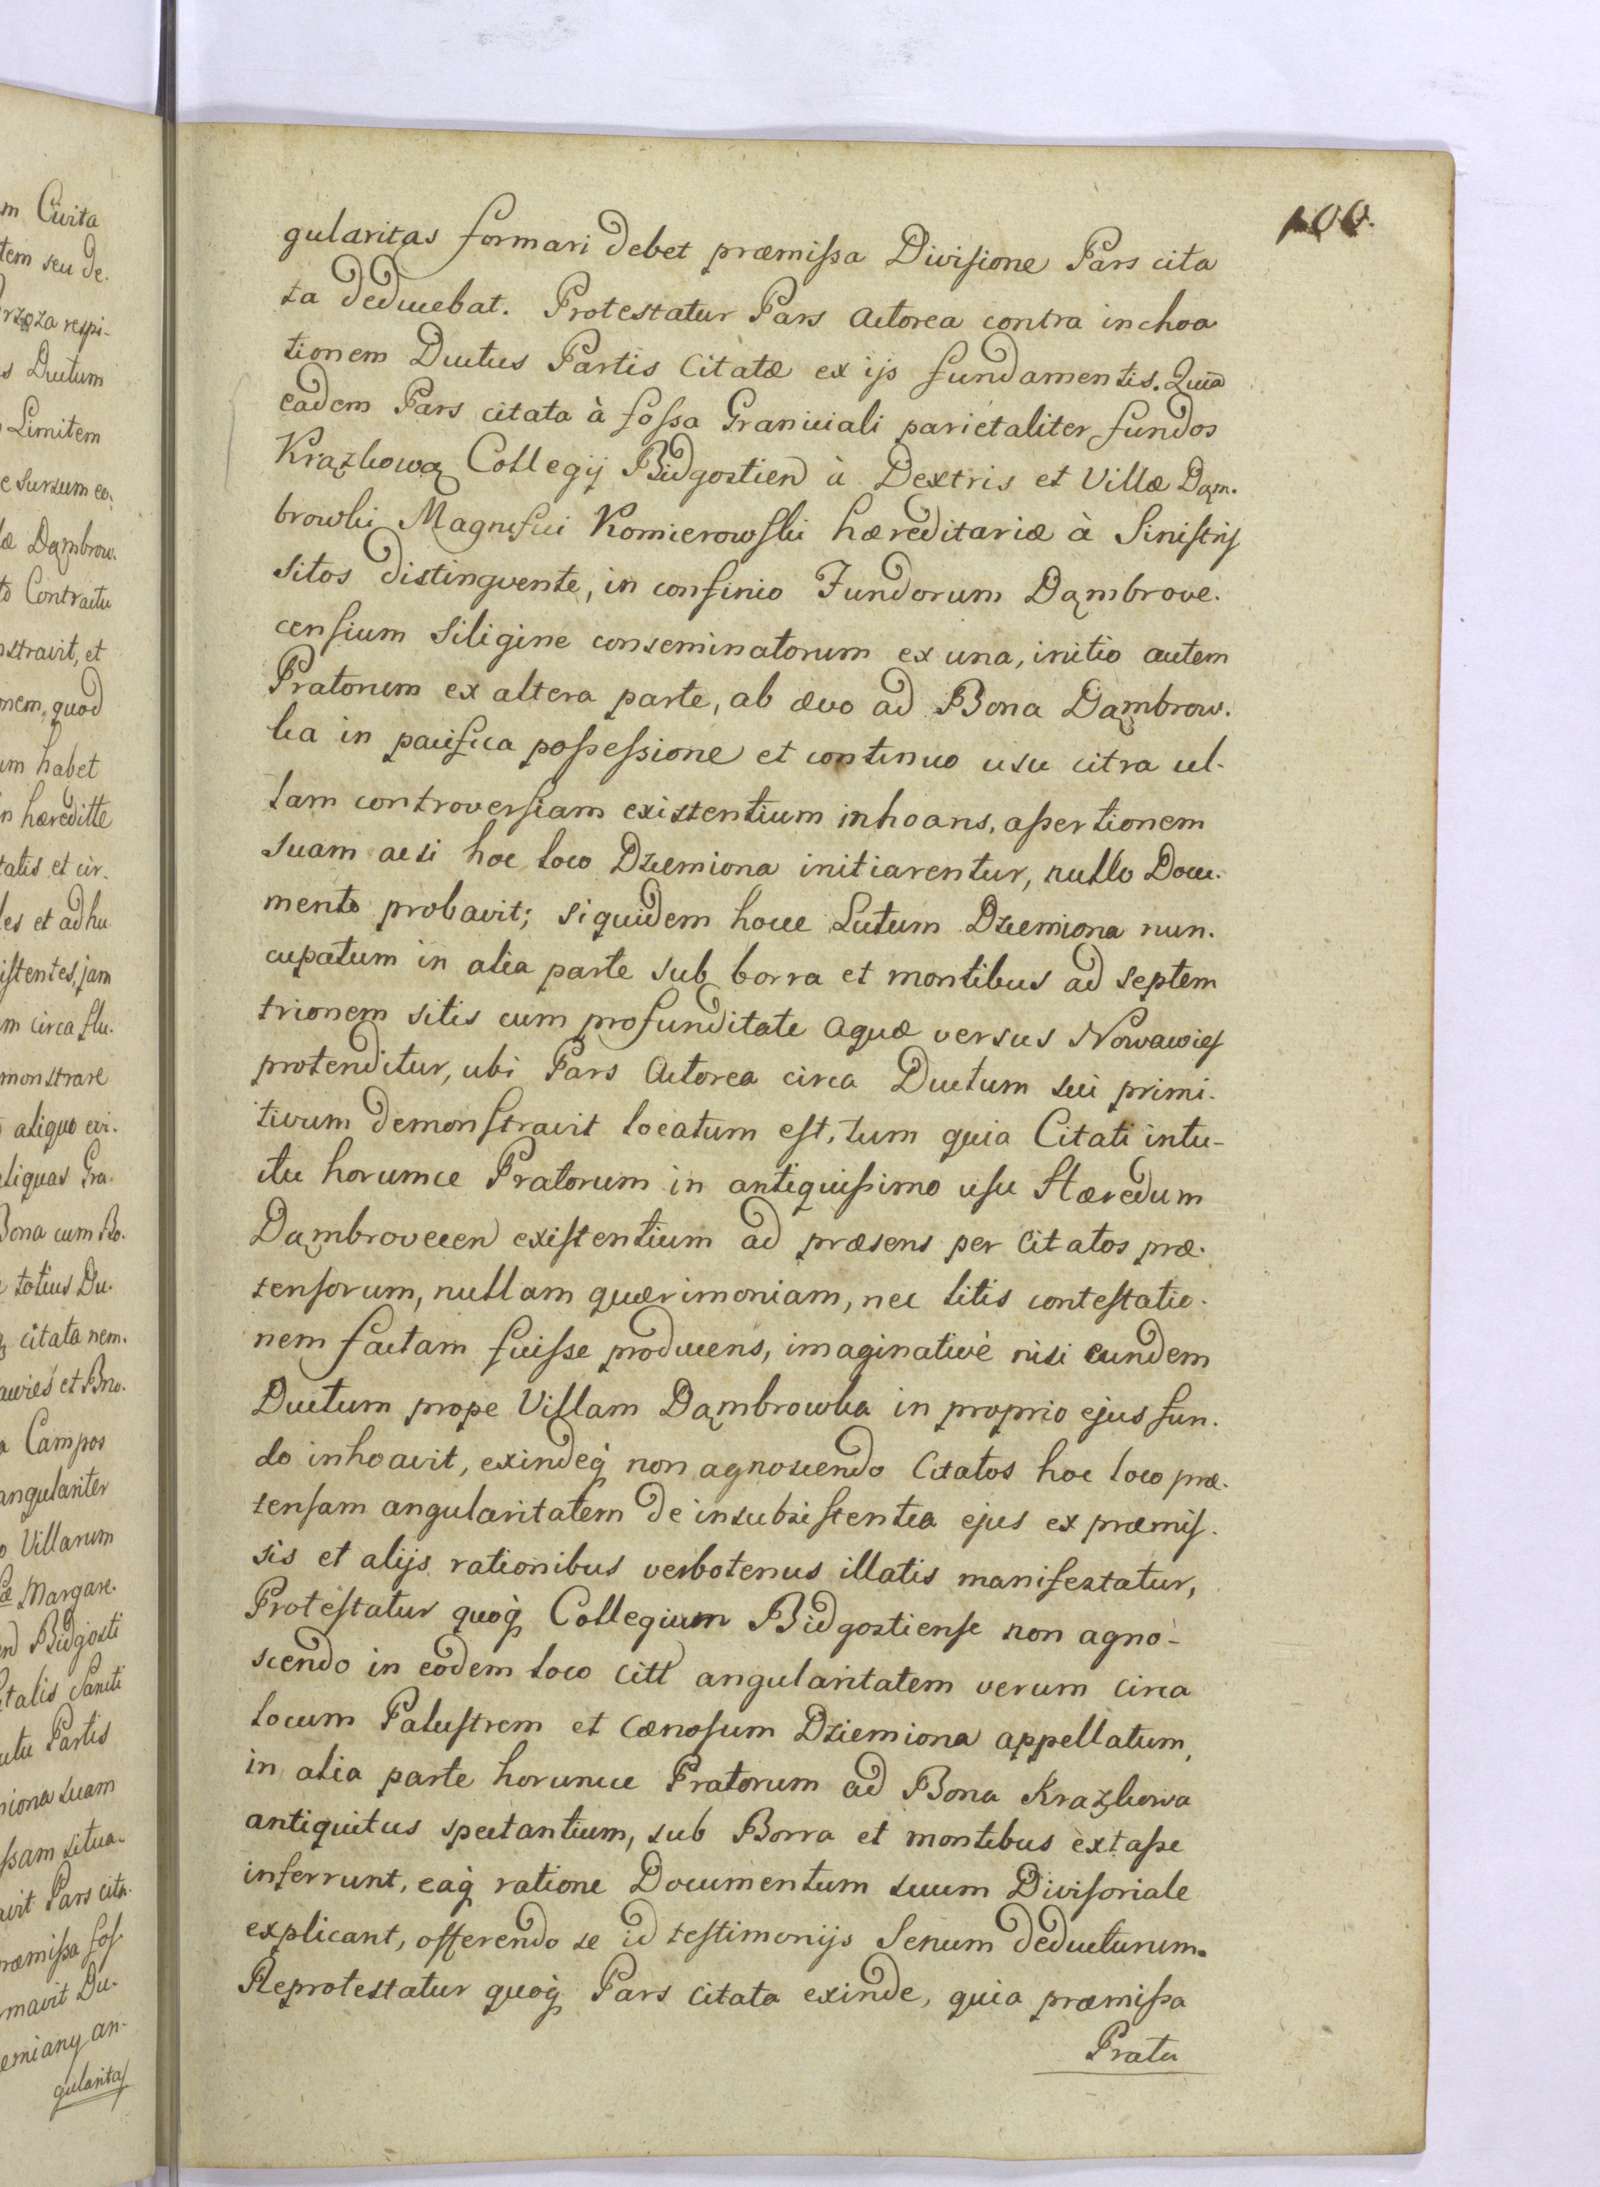 100.
gularitas formari debet præmissa Divisione Pars cita
ta deducebat. Protestatur Pars Actorea contra inchoa
tionem Ductus Partis Citatæ ex ijs fundamentis. Quia
eadem Pars citata à fossa Graniciali parietaliter fundos
Krązkowa Collegij Bidgostien à Dextris et Villæ Dąm-
browki Magnifici Komierowski hæreditariæ à Sinistris
sitos distingvente, in confinio Fundorum Dąmbrove-
censium siligine conseminatorum ex una, initio autem
Pratorum ex altera parte, ab ævo ad Bona Dąmbrow-
ka in pacifica possessione et continuo usu citra ul-
lam controversiam existentium inhoans, assertionem
suam acsi hoc loco Dziemiona initiarentur, nullo Docu-
mento probavit; siquidem hocce Lutum Dziemiona nun-
cupatum in alia parte sub borra et montibus ad septem
trionem sitis cum profunditate aquæ versus Nowawieś
protenditur, ubi Pars Actorea circa Ductum sui primi-
tivum demonstravit locatum est, tum quia Citati intu-
itu horumce Pratorum in antiquissimo usu Hæredum
Dąmbrovecen existentium ad præsens per Citatos præ-
tensorum, nullam quærimoniam, nec litis contestatio-
nem factam fuisse producens, imaginativè nisi eundem
Ductum prope Villam Dąmbrowka in proprio ejus fun-
do inhoavit, exindeq́ non agnoscendo Citatos hoc loco præ-
tensam angularitatem de insubsistentia ejus ex præmis-
sis et alijs rationibus verbotenus illatis manifestatur,
Protestatur quoq́ Collegium Bidgostiense non agno-
scendo in eodem loco Citt angularitatem verum circa
locum Palustrem et Cænosum Dziemiona appellatum,
in alia parte horumce Pratorum ad Bona Krązkowa
antiquitus spectantium, sub Borra et montibus extasse
inferrunt, eaq́ ratione Documentum suum Divisoriale
explicant, offerendo se id testimonijs Senum deducturum.
Reprotestatur quoq́ Pars Citata exinde, quia præmissa
Prata